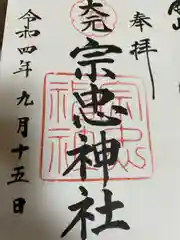 奉拝
大元
宗忠神社
宗忠
神社
令和四年九月十五日